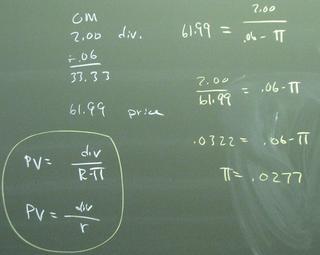 CM
2.00 div.
÷.06
33.33
61.99 price
PV = div / R-π
PV = div / r
61.99 = 2.00 / .06 - π
2.00 / 61.99 = .06 - π
.0322 = .06 - π
π = .0277